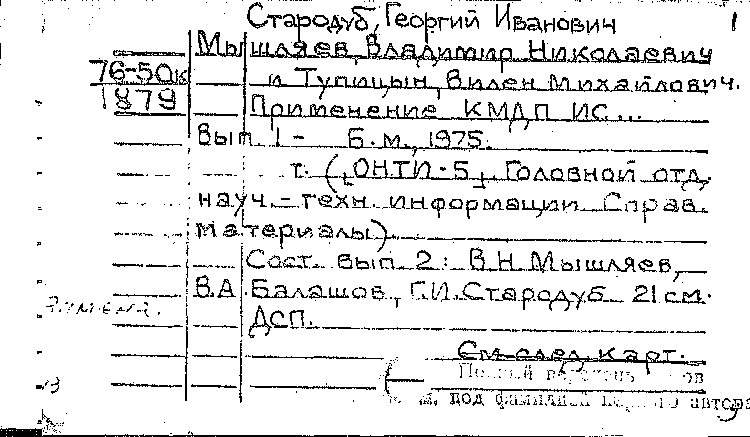 Стародуб, Георгий Иванович 1
Мышляев, Владимир Николаевич
76-50к и Тупицын, Вилен Михайлович.
1879 Применение КМДП ИС...
Вып. 1 - Б.м., 1975.
т. (,,ОНТИ-5„. Головной отд.
науч.-техн. информации. Справ.
материалы).
Сост. вып. 2: В.Н. Мышляев,
В.А. Балашов, Г.И. Стародуб. 21 см.
ДСП.
См. след. карт.
под фамилией автора